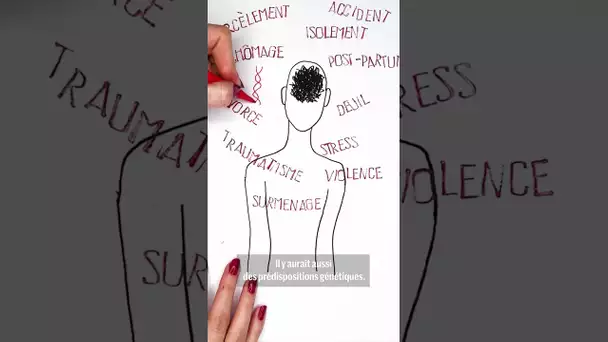 RCÈLEMENT
ACCIDENT
ISOLEMENT
HÔMAGE
POST-PARTUM
VORCE
DEUIL
TRAUMATISME
STRESS
VIOLENCE
SURMENAGE
Il y aurait aussi
des prédispositions génétiques.
TRAUMATI
ESS
VIOLENCE
SUR